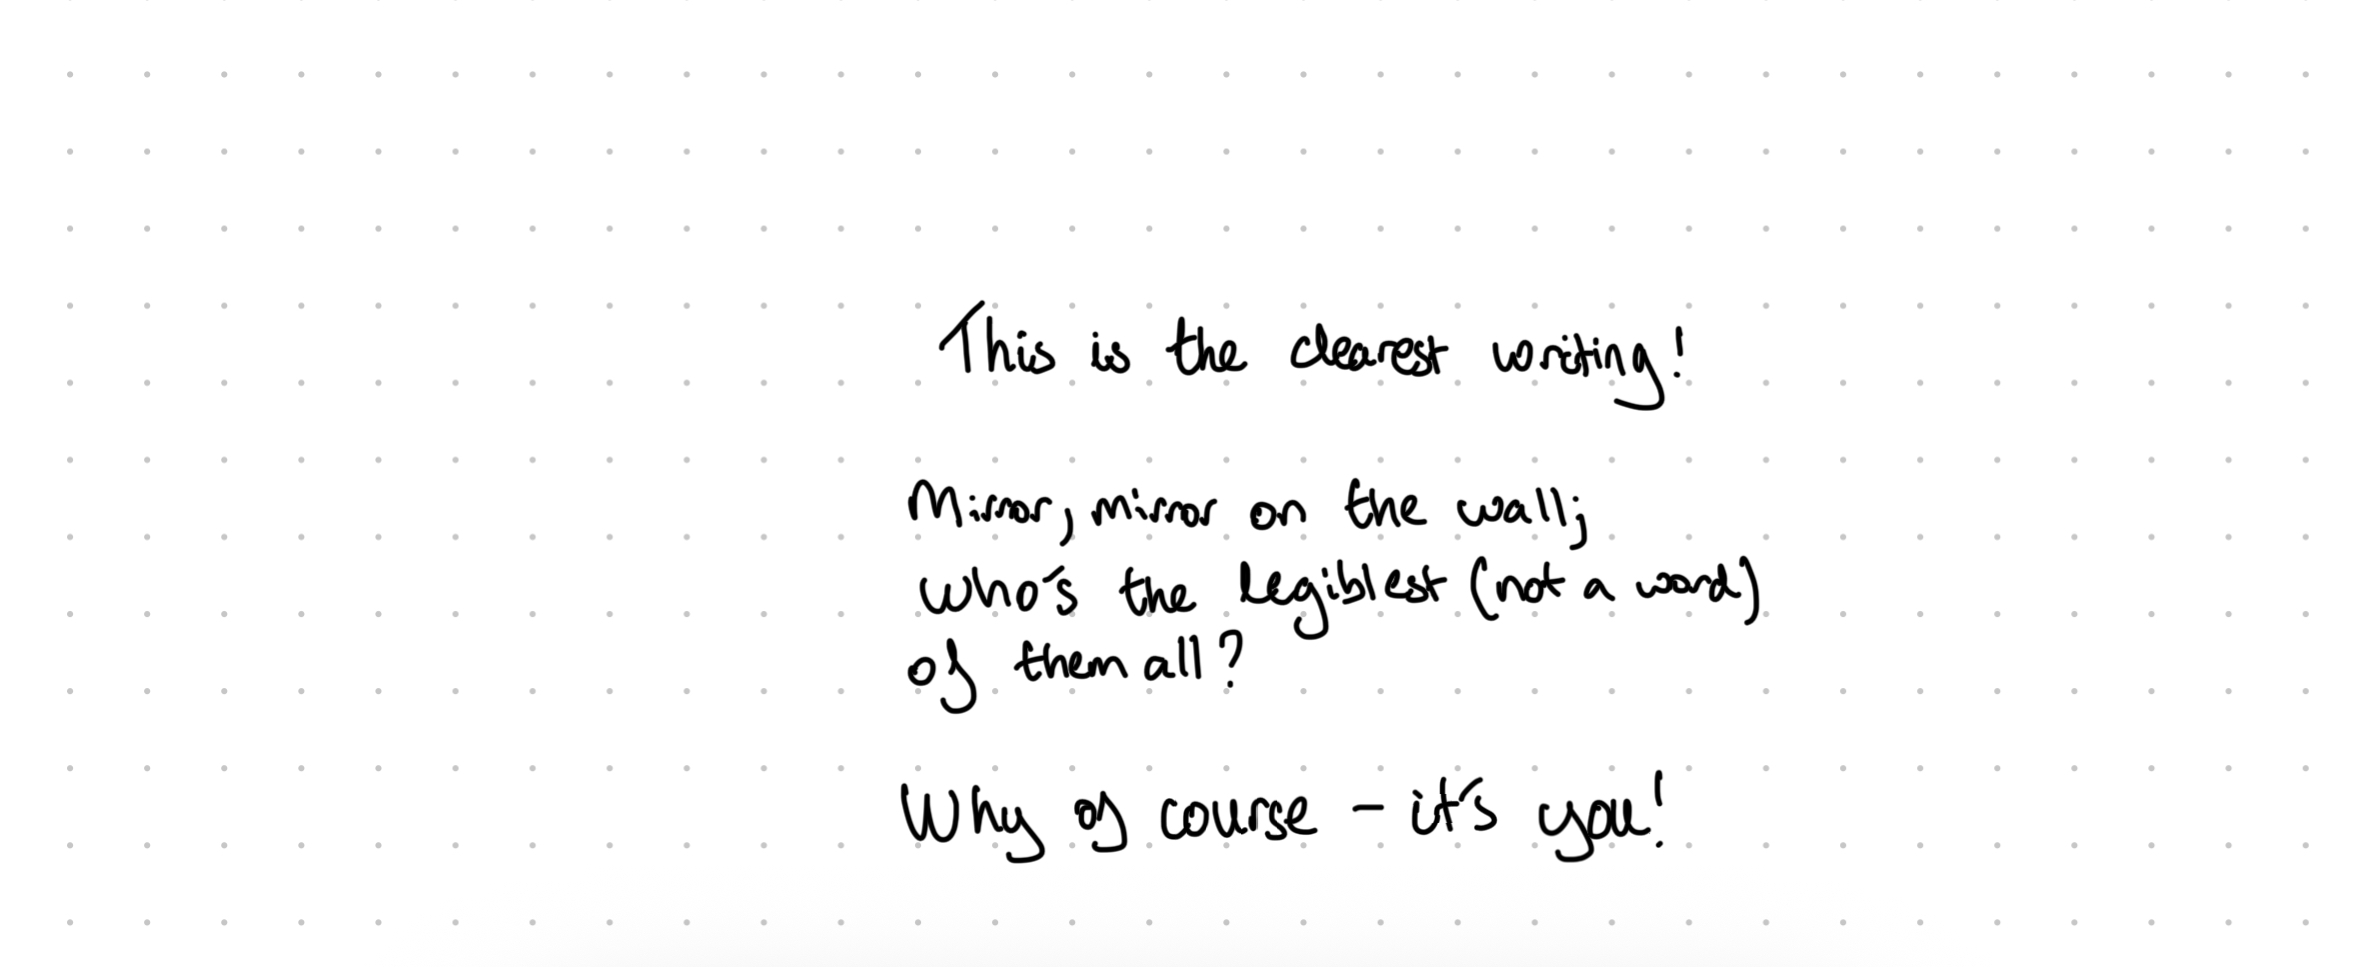 This is the clearest writing!
Mirror, mirror on the wall;
who's the legiblest (not a word)
of them all?
Why of course - it's you!